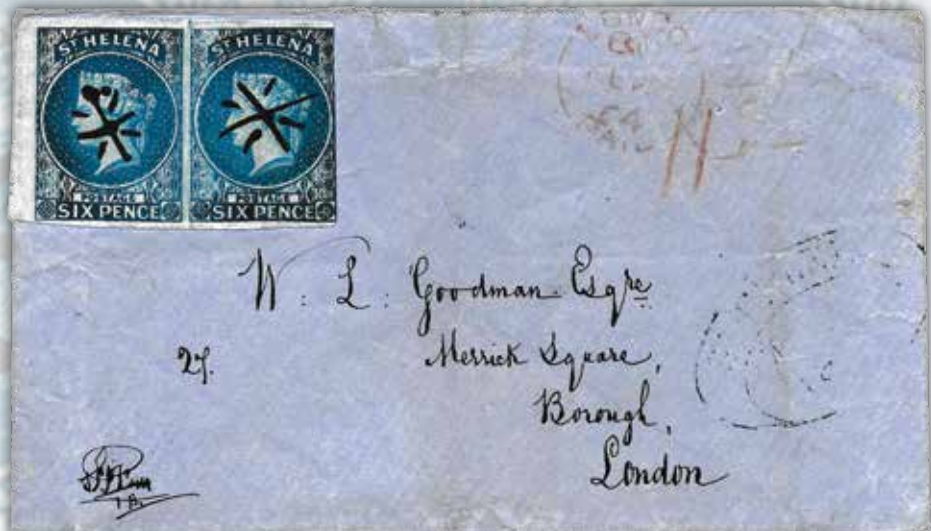 ST HELENA
POSTAGE
SIX PENCE
ST HELENA
POSTAGE
SIX PENCE
W: L: Goodman Esqre
27.
Merrick Square,
Borough,
London